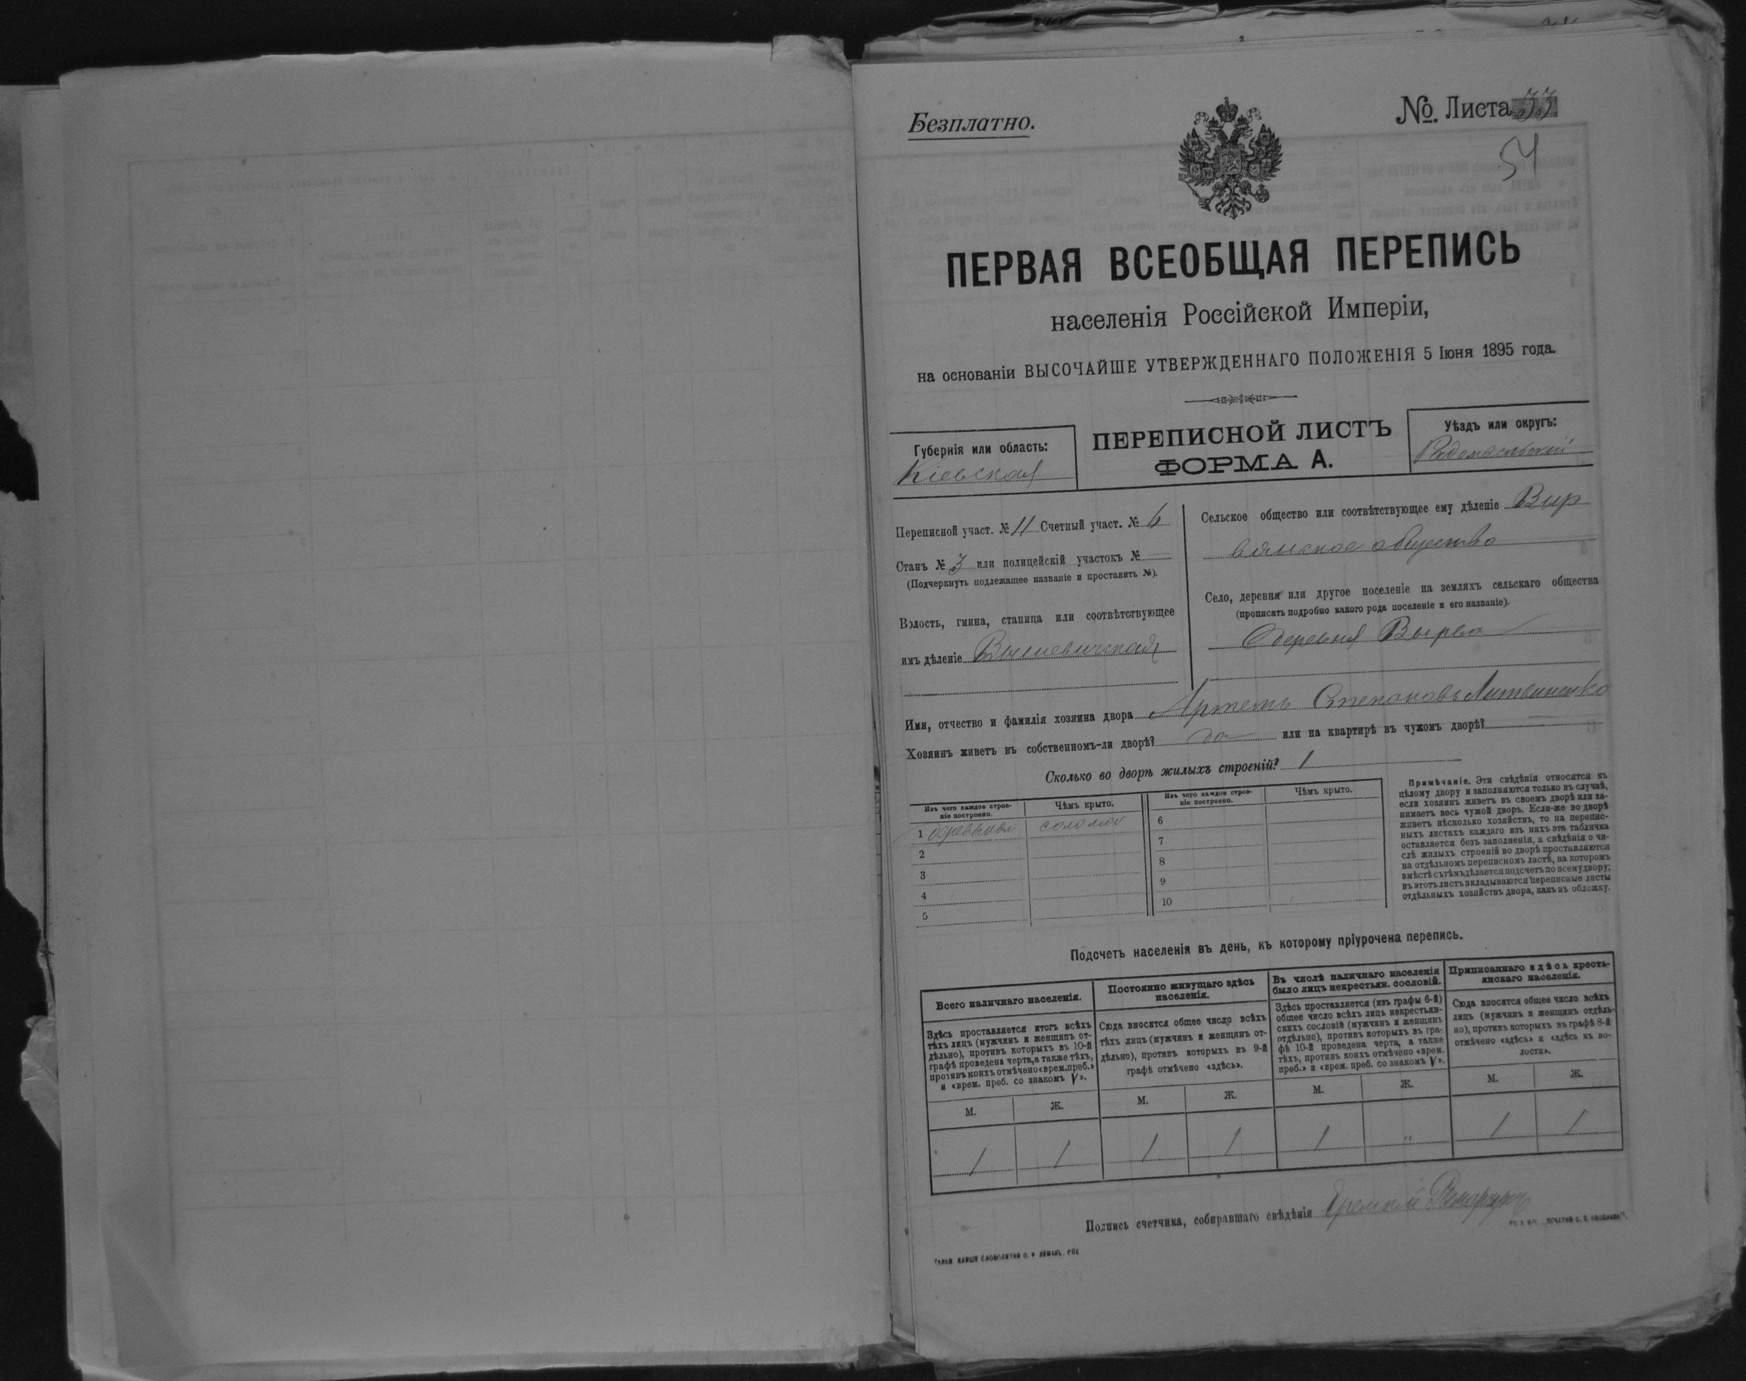 Безплатно.
№. Листа 33
54
ПЕРВАЯ ВСЕОБЩАЯ ПЕРЕПИСЬ
населенія Россійской Имперіи,
на основаніи ВЫСОЧАЙШЕ УТВЕРЖДЕННАГО ПОЛОЖЕНІЯ 5 Іюня 1895 года.
Губернія или область:
Кіевская
ПЕРЕПИСНОЙ ЛИСТЪ
ФОРМА А.
Уѣздъ или округъ:
Радомысльскій
Переписной участ. № 11 Счетный участ. № 6
Станъ № 3 или полицейскій участокъ №
(Подчеркнуть подлежащее названіе и проставить №).
Волость, гмина, станица или соотвѣтствующее
имъ дѣленіе Вышевичская
Сельское общество или соотвѣтствующее ему дѣленіе Выр
вянское общество
Село, деревня или другое поселеніе на земляхъ сельскаго общества
(прописать подробно какого рода поселеніе и его названіе).
деревня Вырва
Имя, отчество и фамилія хозяина двора Артемъ Степановъ Литвиненко
Хозяинъ живетъ въ собственномъ-ли дворѣ? да или на квартирѣ въ чужомъ дворѣ?
Сколько во дворѣ жилыхъ строеній? 1
Изъ чего каждое строе-
ніе построено.
Чѣмъ крыто.
1 соломой
2
3
4
5
Изъ чего каждое строе-
ніе построено.
Чѣмъ крыто.
6
7
8
9
10
Примѣчаніе. Эти свѣдѣнія относятся къ
цѣлому двору и заполняются только въ случаѣ,
если хозяинъ живетъ въ своемъ дворѣ или за-
нимаетъ весь чужой дворъ. Если-же во дворѣ
живетъ нѣсколько хозяйствъ, то на перепис-
ныхъ листахъ каждаго изъ нихъ эта табличка
оставляется безъ заполненія, а свѣдѣнія о чи-
слѣ жилыхъ строеній во дворѣ проставляются
на отдѣльномъ переписномъ листѣ, на которомъ
вмѣстѣ съ тѣмъ дѣлается подсчетъ по всему двору;
въ этотъ листъ вкладываются переписные листы
отдѣльныхъ хозяйствъ двора, какъ въ обложку.
Подсчетъ населенія въ день, къ которому пріурочена перепись.
Всего наличнаго населенія.
Здѣсь проставляется итогъ всѣхъ
тѣхъ лицъ (мужчинъ и женщинъ от-
дѣльно), противъ которыхъ въ 10-й
графѣ проведена черта, а также тѣхъ,
противъ коихъ отмѣчено «врем. преб.»
и «врем. преб. со знакомъ V».
М. Ж.
1 1
Постоянно живущаго здѣсь
населенія.
Сюда вносится общее число всѣхъ
тѣхъ лицъ (мужчинъ и женщинъ от-
дѣльно), противъ которыхъ въ 9-й
графѣ отмѣчено «здѣсь».
М. Ж.
1 1
Въ числѣ наличнаго населенія
было лицъ некрестьян. сословій.
Здѣсь проставляется (изъ графы 6-й)
общее число всѣхъ лицъ некрестьян-
скихъ сословій (мужчинъ и женщинъ
отдѣльно), противъ которыхъ въ гра-
фѣ 10-й проведена черта, а также
тѣхъ, противъ коихъ отмѣчено «врем.
преб.» и «врем. преб. со знакомъ V».
М. Ж.
1 "
Приписаннаго здѣсь кресть-
янскаго населенія.
Сюда вносится общее число всѣхъ
лицъ (мужчинъ и женщинъ отдѣль-
но), противъ которыхъ въ графѣ 8-й
отмѣчено «здѣсь» и «здѣсь къ во-
лости».
М. Ж.
1 1
Подпись счетчика, собиравшаго свѣдѣнія